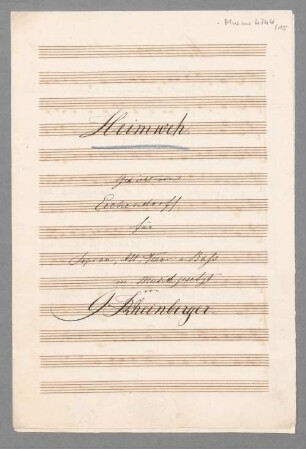 Mus.ms. 4744
/15
Heimweh.
Gedicht von
Eichendorff
für
Sopran, Alt, Tenor u Bass
in Musik gesetzt
von
J. Rheinberger.